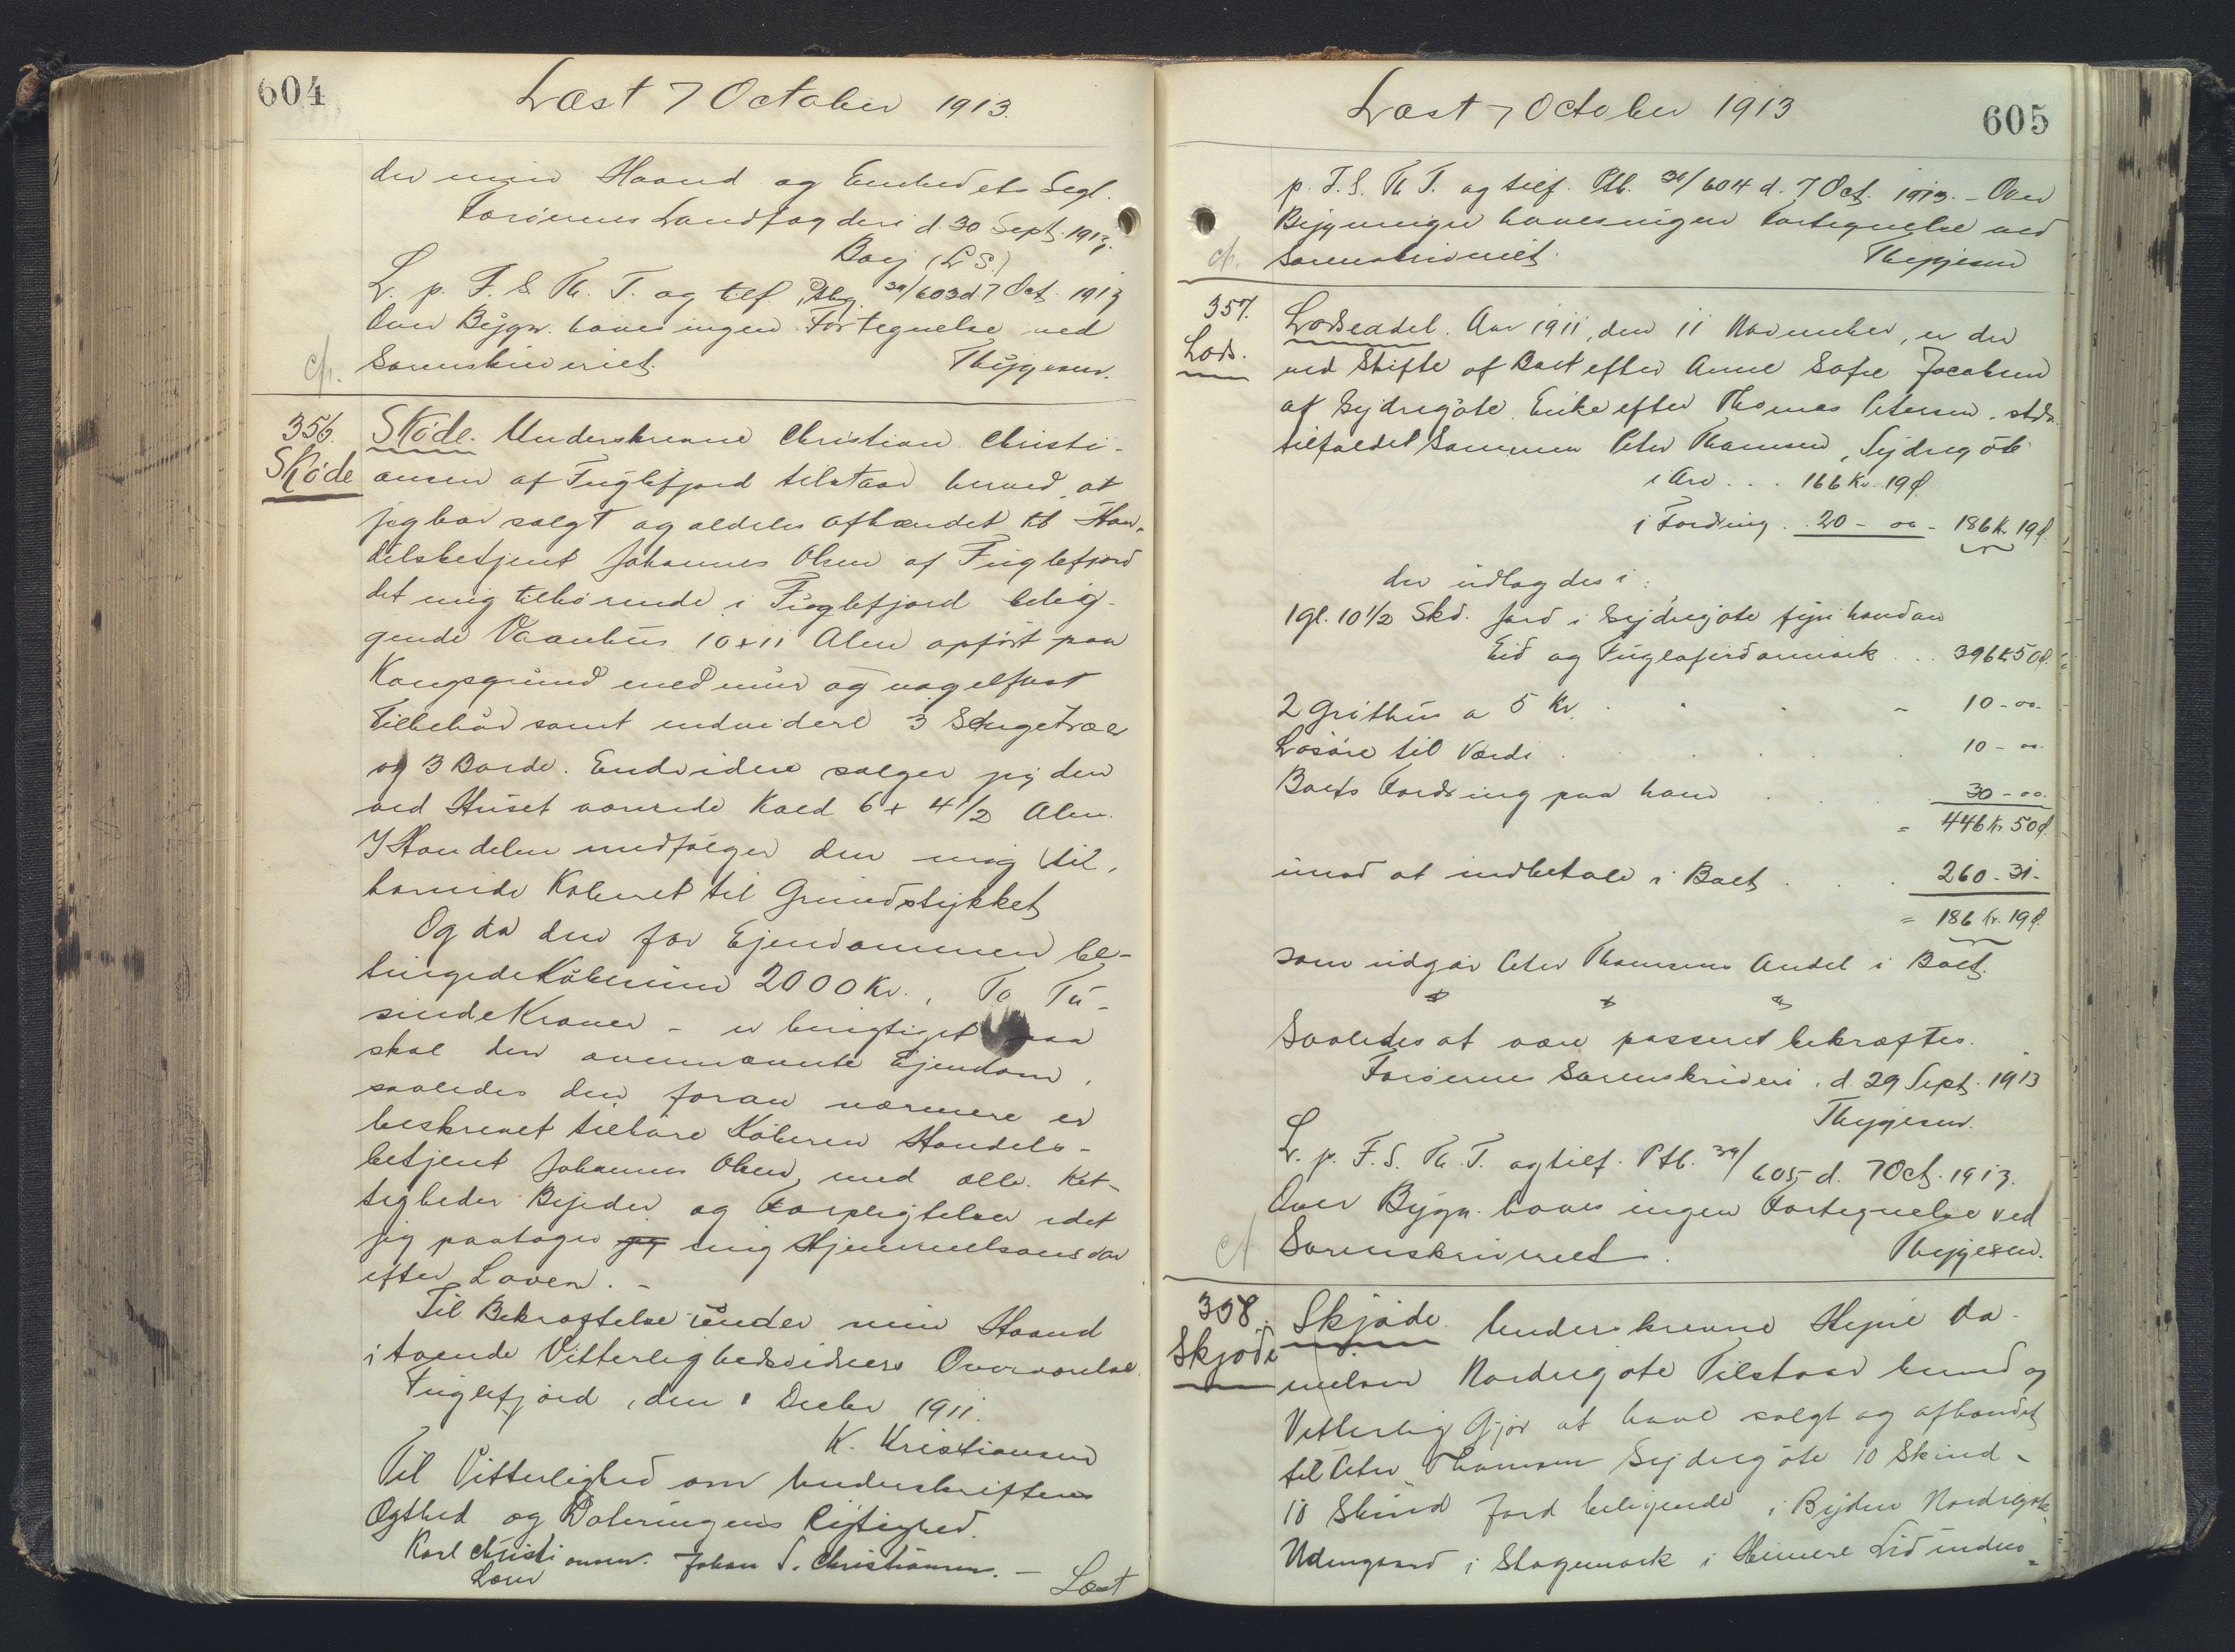 604
Læst 7 October 1913.
der min Haand og Embedets Segl.
Færøernes Landfogderi d. 30 Sept. 1913.
Bærj (L S.)
L. p. F. S. Th. T. og tilf. Ptbg. 39/603 d. 7 Oct. 1913
Over Bygn. haves ingen Fortegnelse ved
Sorenskriveriet. Thygesen.
cf.
356. Skøde. Underskrevne Christian Christi-
Skøde ansen af Fuglefjord tilstaar herved, at
jeg har solgt og aldeles afhændet til Han-
delsbetjent Johannes Olsen af Fuglefjord
det mig tilhørende i Fuglefjord belig-
gende Vaanhus 10 x 11 Alen opført paa
Kongsgrund med mur og nagelfast
Tilbehør samt endvidere 3 Sengetræer
og 3 Borde. Endvidere sælger jeg den
ved Huset værende Kæld 6 x 4 1/2 Alen.
I Handelen medfølger den mig til-
hørende Køberet til Grundstykket
Og da den for Ejendommen be-
tingede Købesum 2000 Kr., To Tu-
sinde Kroner - er berigtiget saa
skal den ovennævnte Ejendom,
saaledes den foran nærmere er
beskrevet tilhøre Køberen Handels-
betjent Johannes Olsen, med alle Ret-
tigheder Byrder og Forpligtelser idet
jeg paatager jeg mig Hjemmelsansvar
efter Loven. -
Til Bekræftelse under min Haand
i tvende Vitterlighedsvidners Overværelse.
Fuglefjord, den 1 Decbr 1911.
K. Kristiansen
Til Vitterlighed om Underskriftens
Ægthed og Dateringens Rigtighed.
Karl Christiansen. Johan S. Christiansen. -
Læst
605
Læst 7 October 1913
p. F. S. Th T. og tilf. Ptb. 39/604 d. 7 Oct. 1913. - Over
Bygninger haves ingen Fortegnelse ved
cf. Sorenskriveriet. Thygesen
357. Lodseddel. Aar 1911, den 11 November, er der
Lods. ved Skifte af Boet efter Anne Sofie Jacobsen
af Sydregøte Enke efter Thomas Petersen. stds.
tilfaldet Sønnen Peter Thomsen, Sydregøte
i Arv . . . 166 Kr. 19 Ø
i Fordring . . 20 - 00 - 186 Kr. 19 Ø.
der udlagdes i:
1 gl. 10 1/2 Skd. Jord i Sydregøte fyri handan
Eid og Fuglafjordarmark . . . 396 Kr 50 Ø.
2 Grothus a 5 Kr. . . . - 10 - 00 -
Løsøre til Værdi . . . . 10 - 00 -
Boets Fordring paa ham . . . 30 - 00.
= 446 Kr. 50 Ø.
imod at indbetale i Boet . . . 260 - 31 -
= 186 Kr. 19 Ø.
som udgør Peter Thomsens Andel i Boet.
Saaledes at være passeret bekræftes.
Færøernes Sorenskriveri, d. 29 Sept. 1913
Thygesen.
L. p. F. S. Th. T. og tilf. Ptb. 39/605 d. 7 Oct. 1913.
Over Bygn. haves ingen Fortegnelse ved
cf. Sorenskriveriet. Thygesen.
358. Skjøde. Underskrevne Da-
Skjøde nielsen Nordregøte Tilstaar herved og
Vitterlig Gjør at have solgt og afhændet
til Peter Thomsen Sydregøte 10 Skind -
10 Skind Jord beliggende i Bygden Nordregøte
i Stagemark i Heimere Lid under